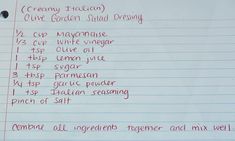 (Creamy Italian)
Olive Garden Salad Dressing
1/2 cup mayonnaise
1/3 cup white vinegar
1 tsp olive oil
1 tbsp lemon juice
1 tsp sugar
3 tbsp parmesan
1/4 tsp garlic powder
1 tsp Italian seasoning
pinch of salt
combine all ingredients together and mix well